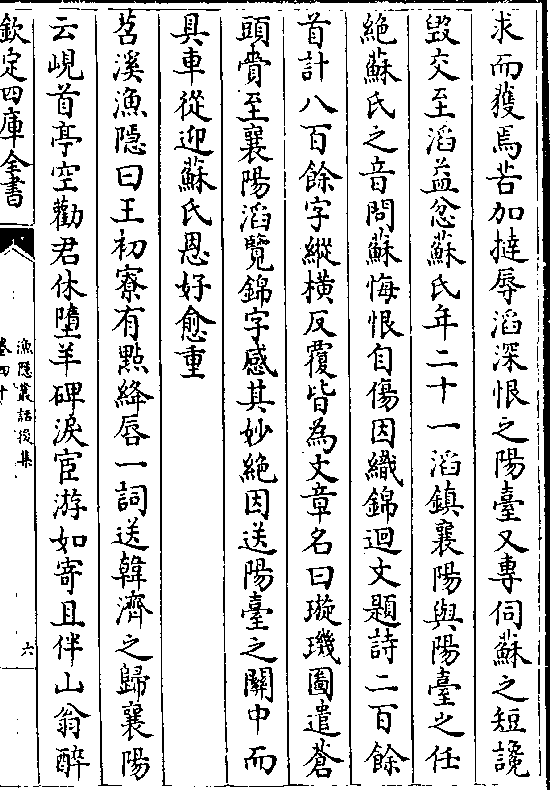 求而獲焉苦加撻辱滔深恨之陽臺又專伺蘇之短讒
毀交至滔益忿蘇氏年二十一滔鎮襄陽與陽臺之任
絶蘇氏之音問蘇悔恨自傷因織錦迴文題詩二百餘
首計八百餘字縱橫反覆皆為文章名曰璇璣圖遣蒼
頭賫至襄陽滔覽錦字感其妙絶因送陽臺之關中而
具車從迎蘇氏恩好愈重
苕溪漁隱曰王初寮有點絳唇一詞送韓濟之歸襄陽
云峴首亭空勸君休墮羊碑淚宦游如寄且伴山翁醉
欽定四庫全書
漁隱叢話後集
卷四十
六